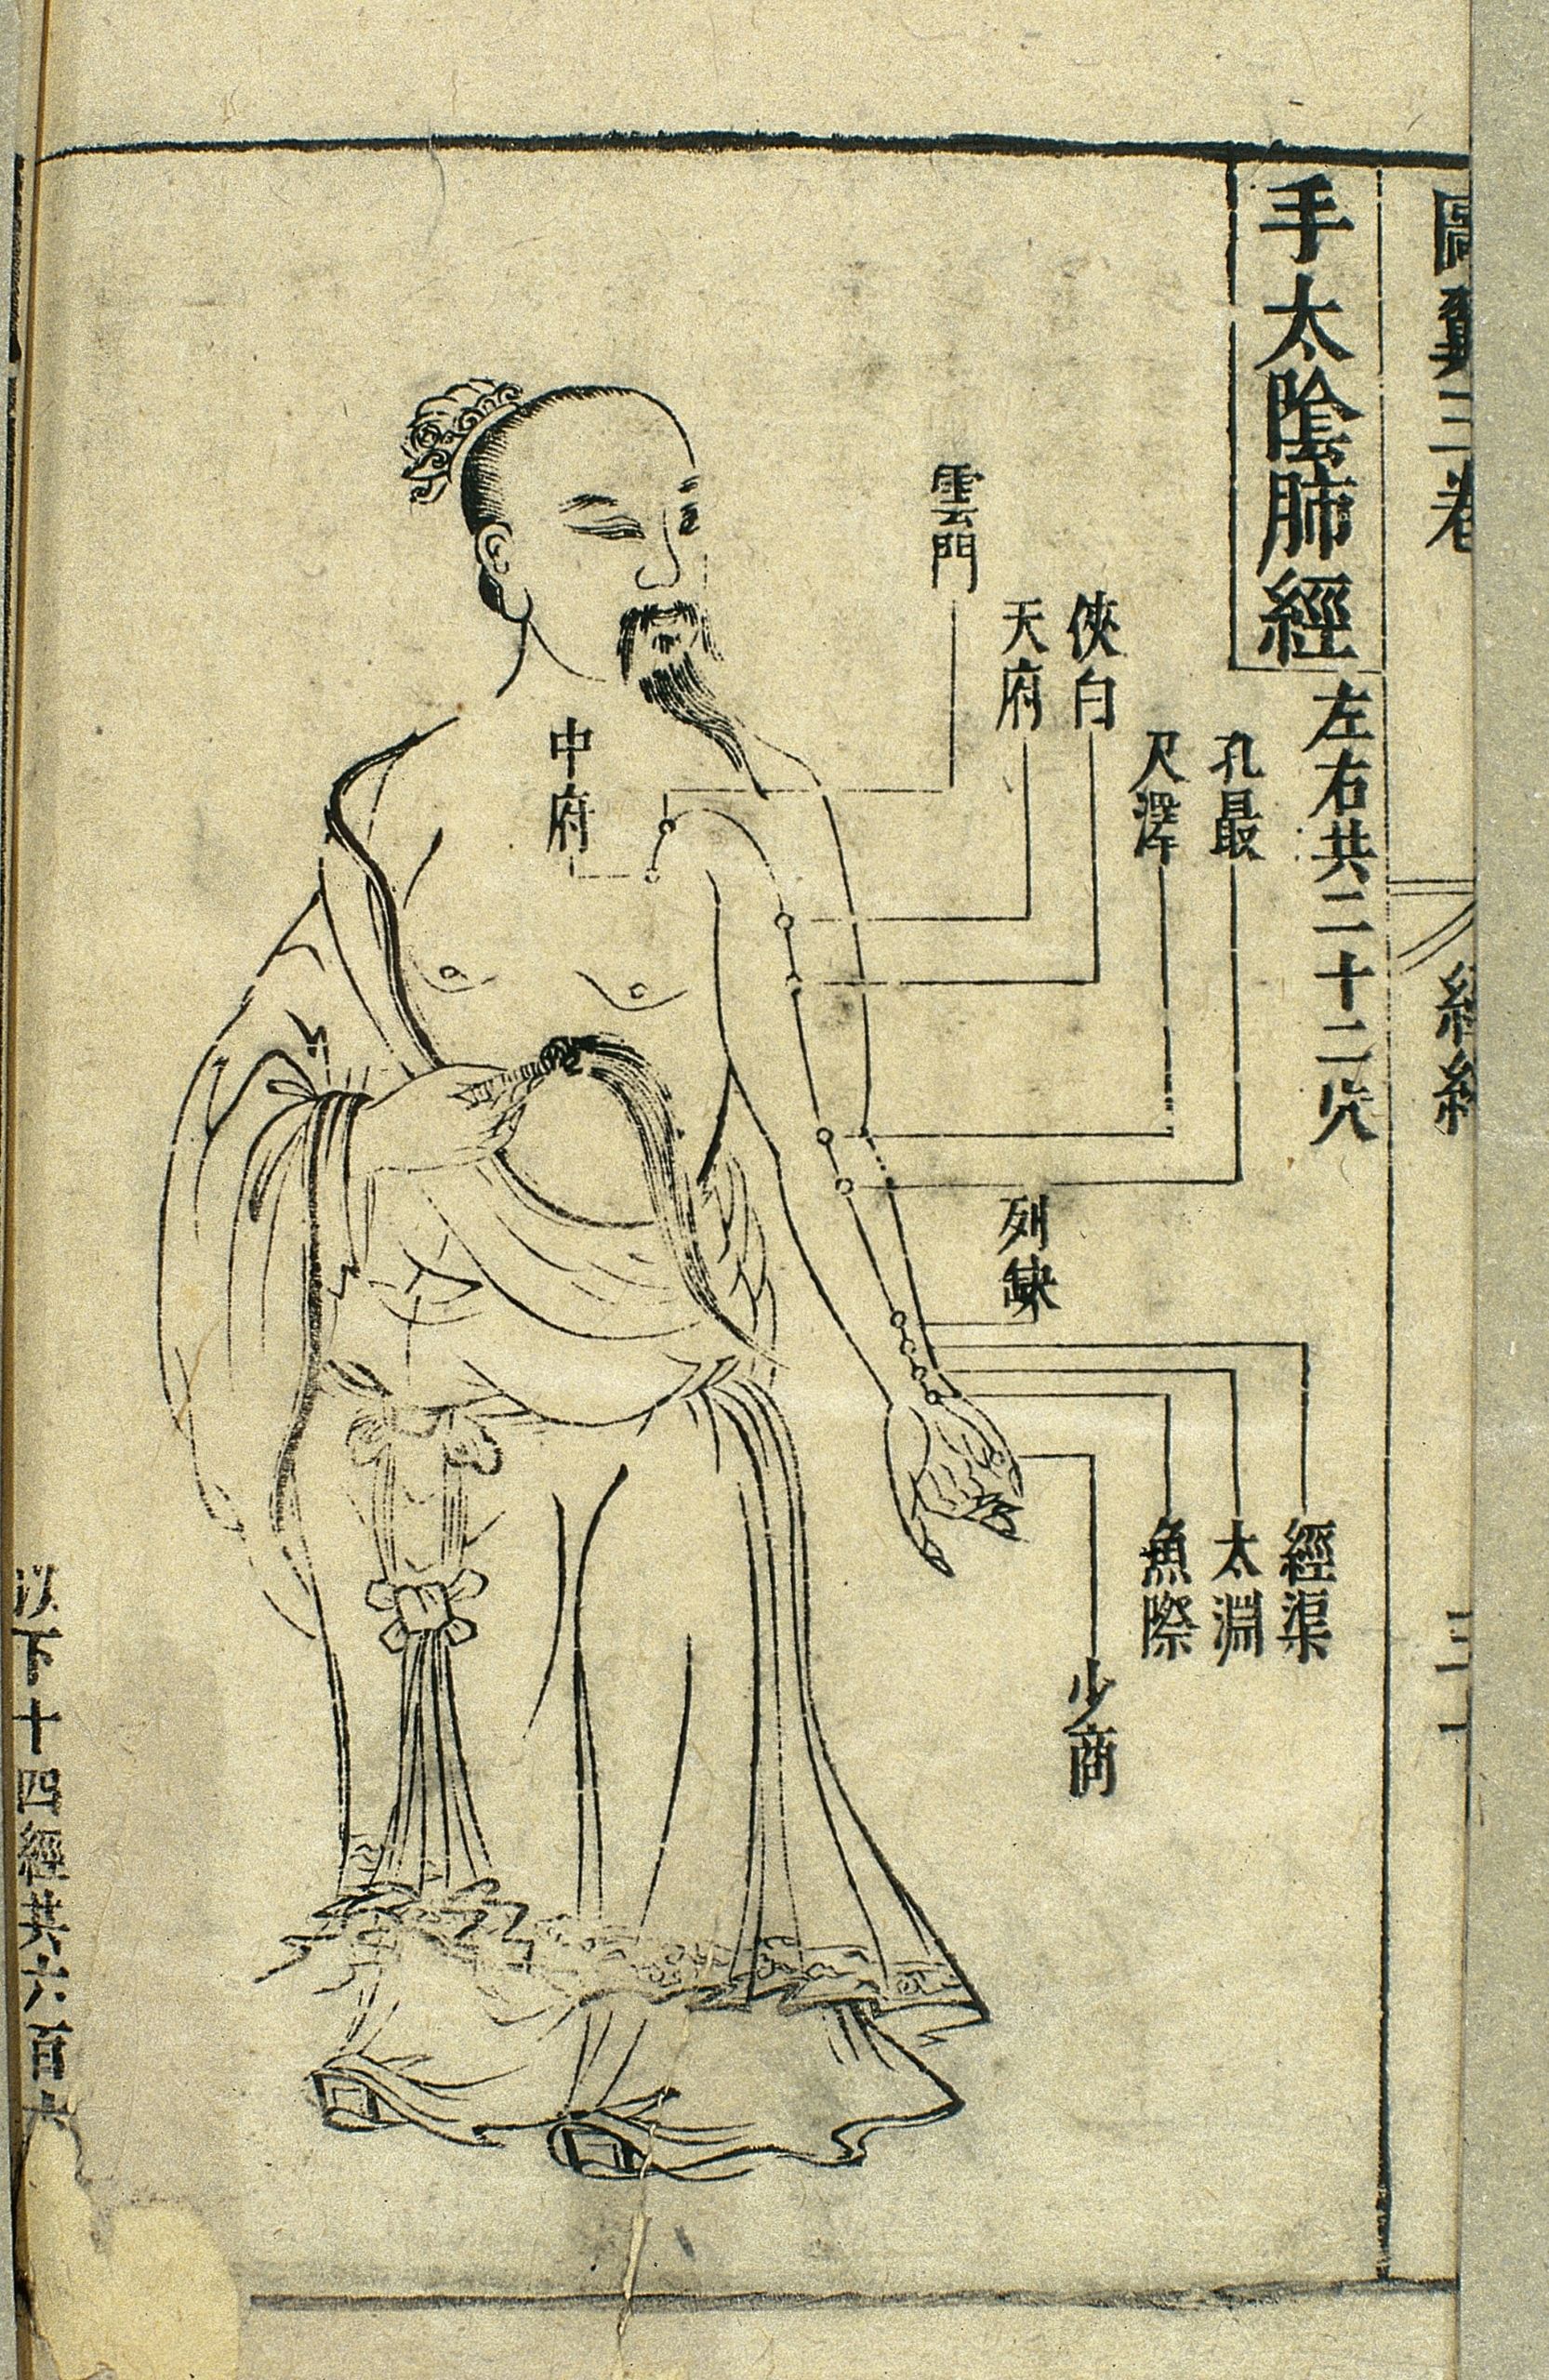 圖翼三卷
經絡
三十
手太陰肺經
左右共二十二穴
孔最
尺澤
俠白
天府
雲門
中府
列缺
經渠
太淵
魚際
少商
以下十四經共六百六